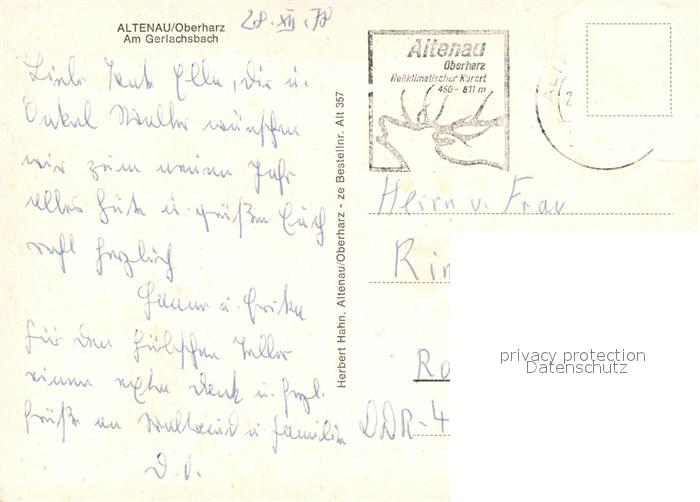 ALTENAU/Oberharz
Am Gerlachsbach
28. XII. 78
Liebe Tante Ella, Dir u.
Onkel Walter wünschen
wir zum neuen Jahr
alles Gute u. grüßen Euch
recht herzlich
Hanna u. Erika
Für den hübschen Teller
einen extra Dank u. herzl.
Grüße an u. Familie
D. O.
Herbert Hahn, Altenau/Oberharz - ze Bestellnr. Alt 357
Altenau
Oberharz
Heilklimatischer Kurort
450 - 811 m
Herrn u. Frau
Rin
Ro
DDR-4
privacy protection
Datenschutz